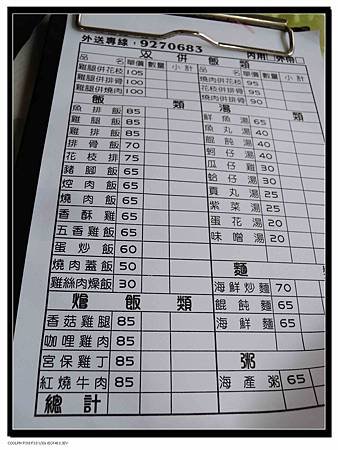 外送專線：9270683 內用 外帶
双併飯類
品名 單價 數量 小計 品名 單價 數量 小計
雞腿併花枝 105 燒肉併花枝 95
雞腿併排骨 100 花枝併排骨 95
雞腿併燒肉 100 燒肉併排骨 90
飯類
魚排飯 85
雞腿飯 85
雞排飯 85
排骨飯 70
花枝排 75
豬腳飯 65
焢肉飯 65
燒肉飯 65
香酥雞 65
五香雞飯 65
蛋炒飯 60
燒肉蓋飯 50
雞絲肉燥飯 30
湯
鮮魚湯 65
魚丸湯 40
餛飩湯 40
蚵仔湯 40
瓜仔雞 30
蛤仔湯 30
貢丸湯 25
紫菜湯 25
蛋花湯 20
味噌湯 20
麵
海鮮炒麵 70
餛飩麵 65
海鮮麵 65
燴飯類
香菇雞腿 85
咖哩雞肉 85
宮保雞丁 85
紅燒牛肉 85
粥
海產粥 65
總計